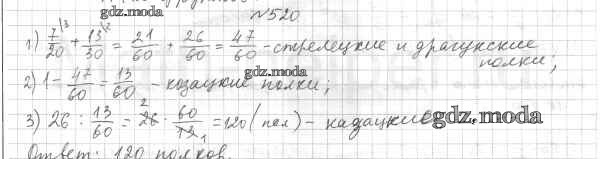 gdz.moda
№520
1) 7/20 \3 + 13/30 \2 = 21/60 + 26/60 = 47/60 - стрелецкие и драгунские
полки;
gdz.moda
2) 1 - 47/60 = 13/60 - козацкие полки;
3) 26 : 13/60 = 26 2 · 60/13 1 = 120 ( пол) -
gdz.moda
Ответ: 120 полков.